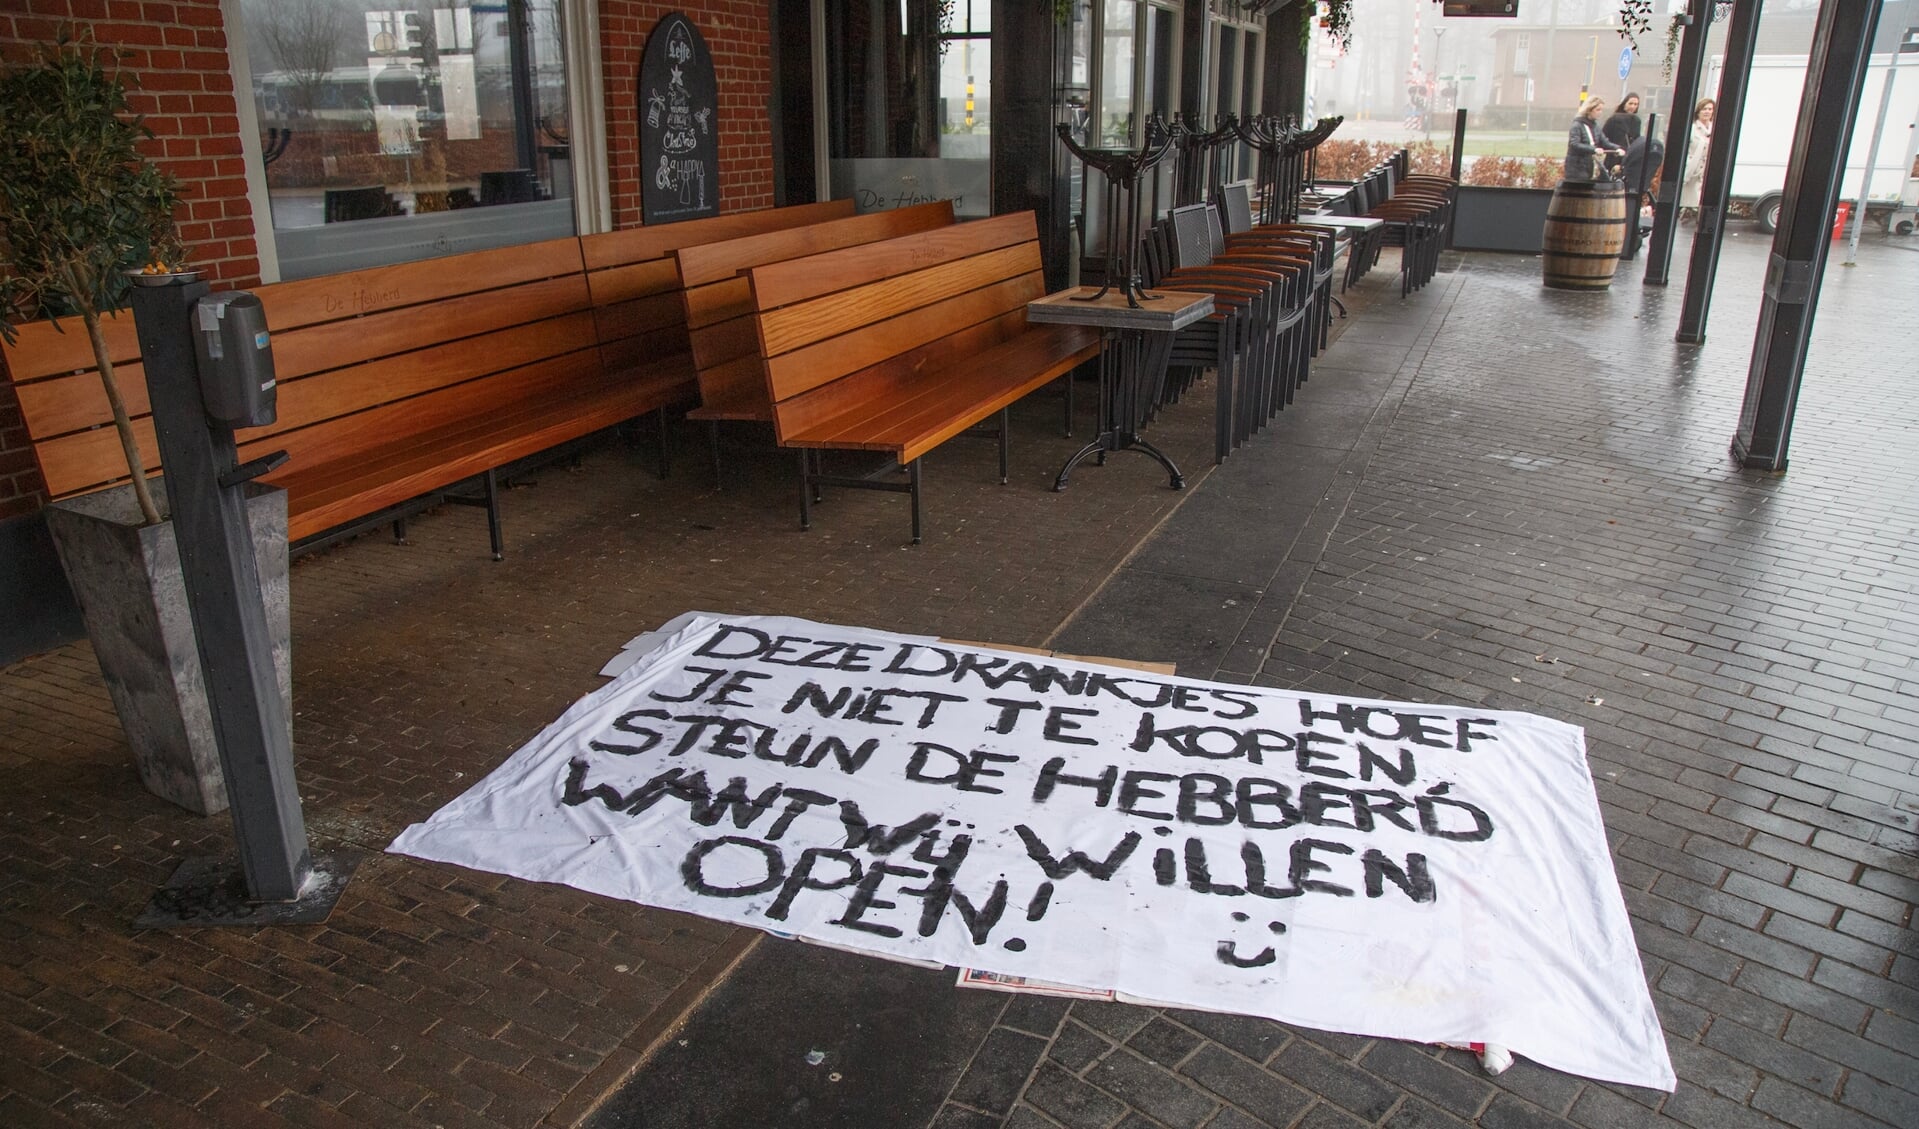 Leffe
Christmas
& a HAPPY
De Hebberd
De Hebberd
De Hebberd
DEZE DRANKJES HOEF
JE NIET TE KOPEN,
STEUN DE HEBBERD
WANT WIJ WILLEN
OPEN!